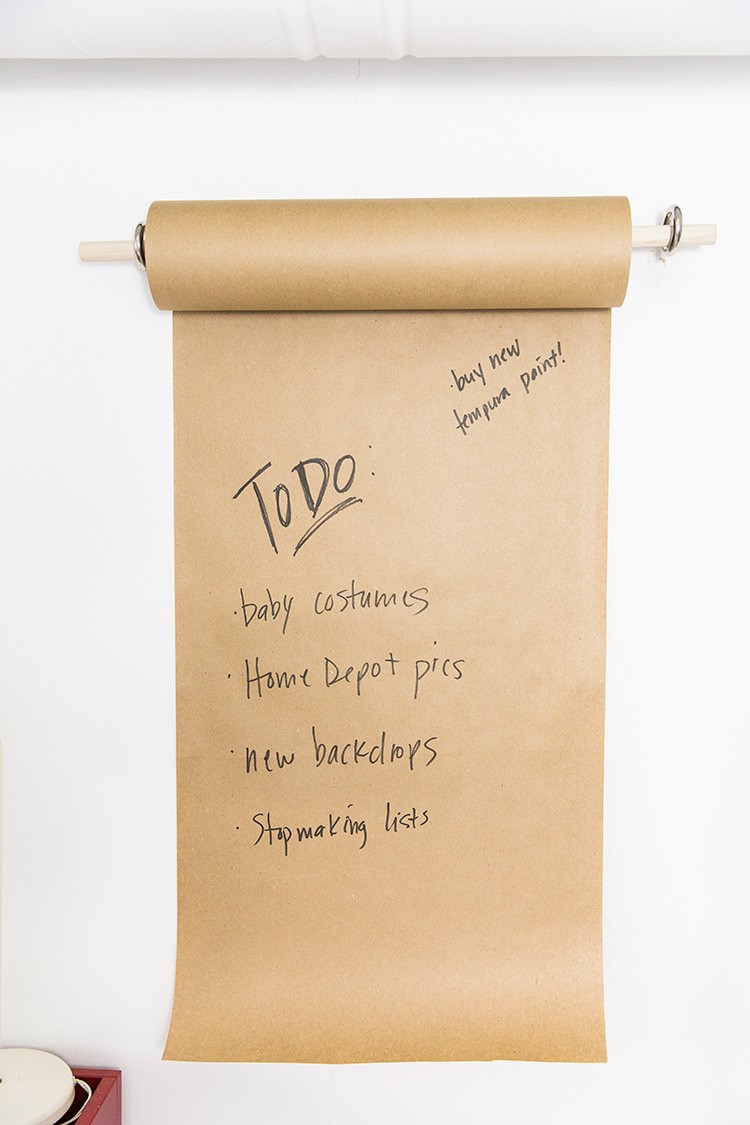 ·buy new
tempura paint!
To DO:
·baby costumes
·Home Depot pics
·new backdrops
·Stop making lists